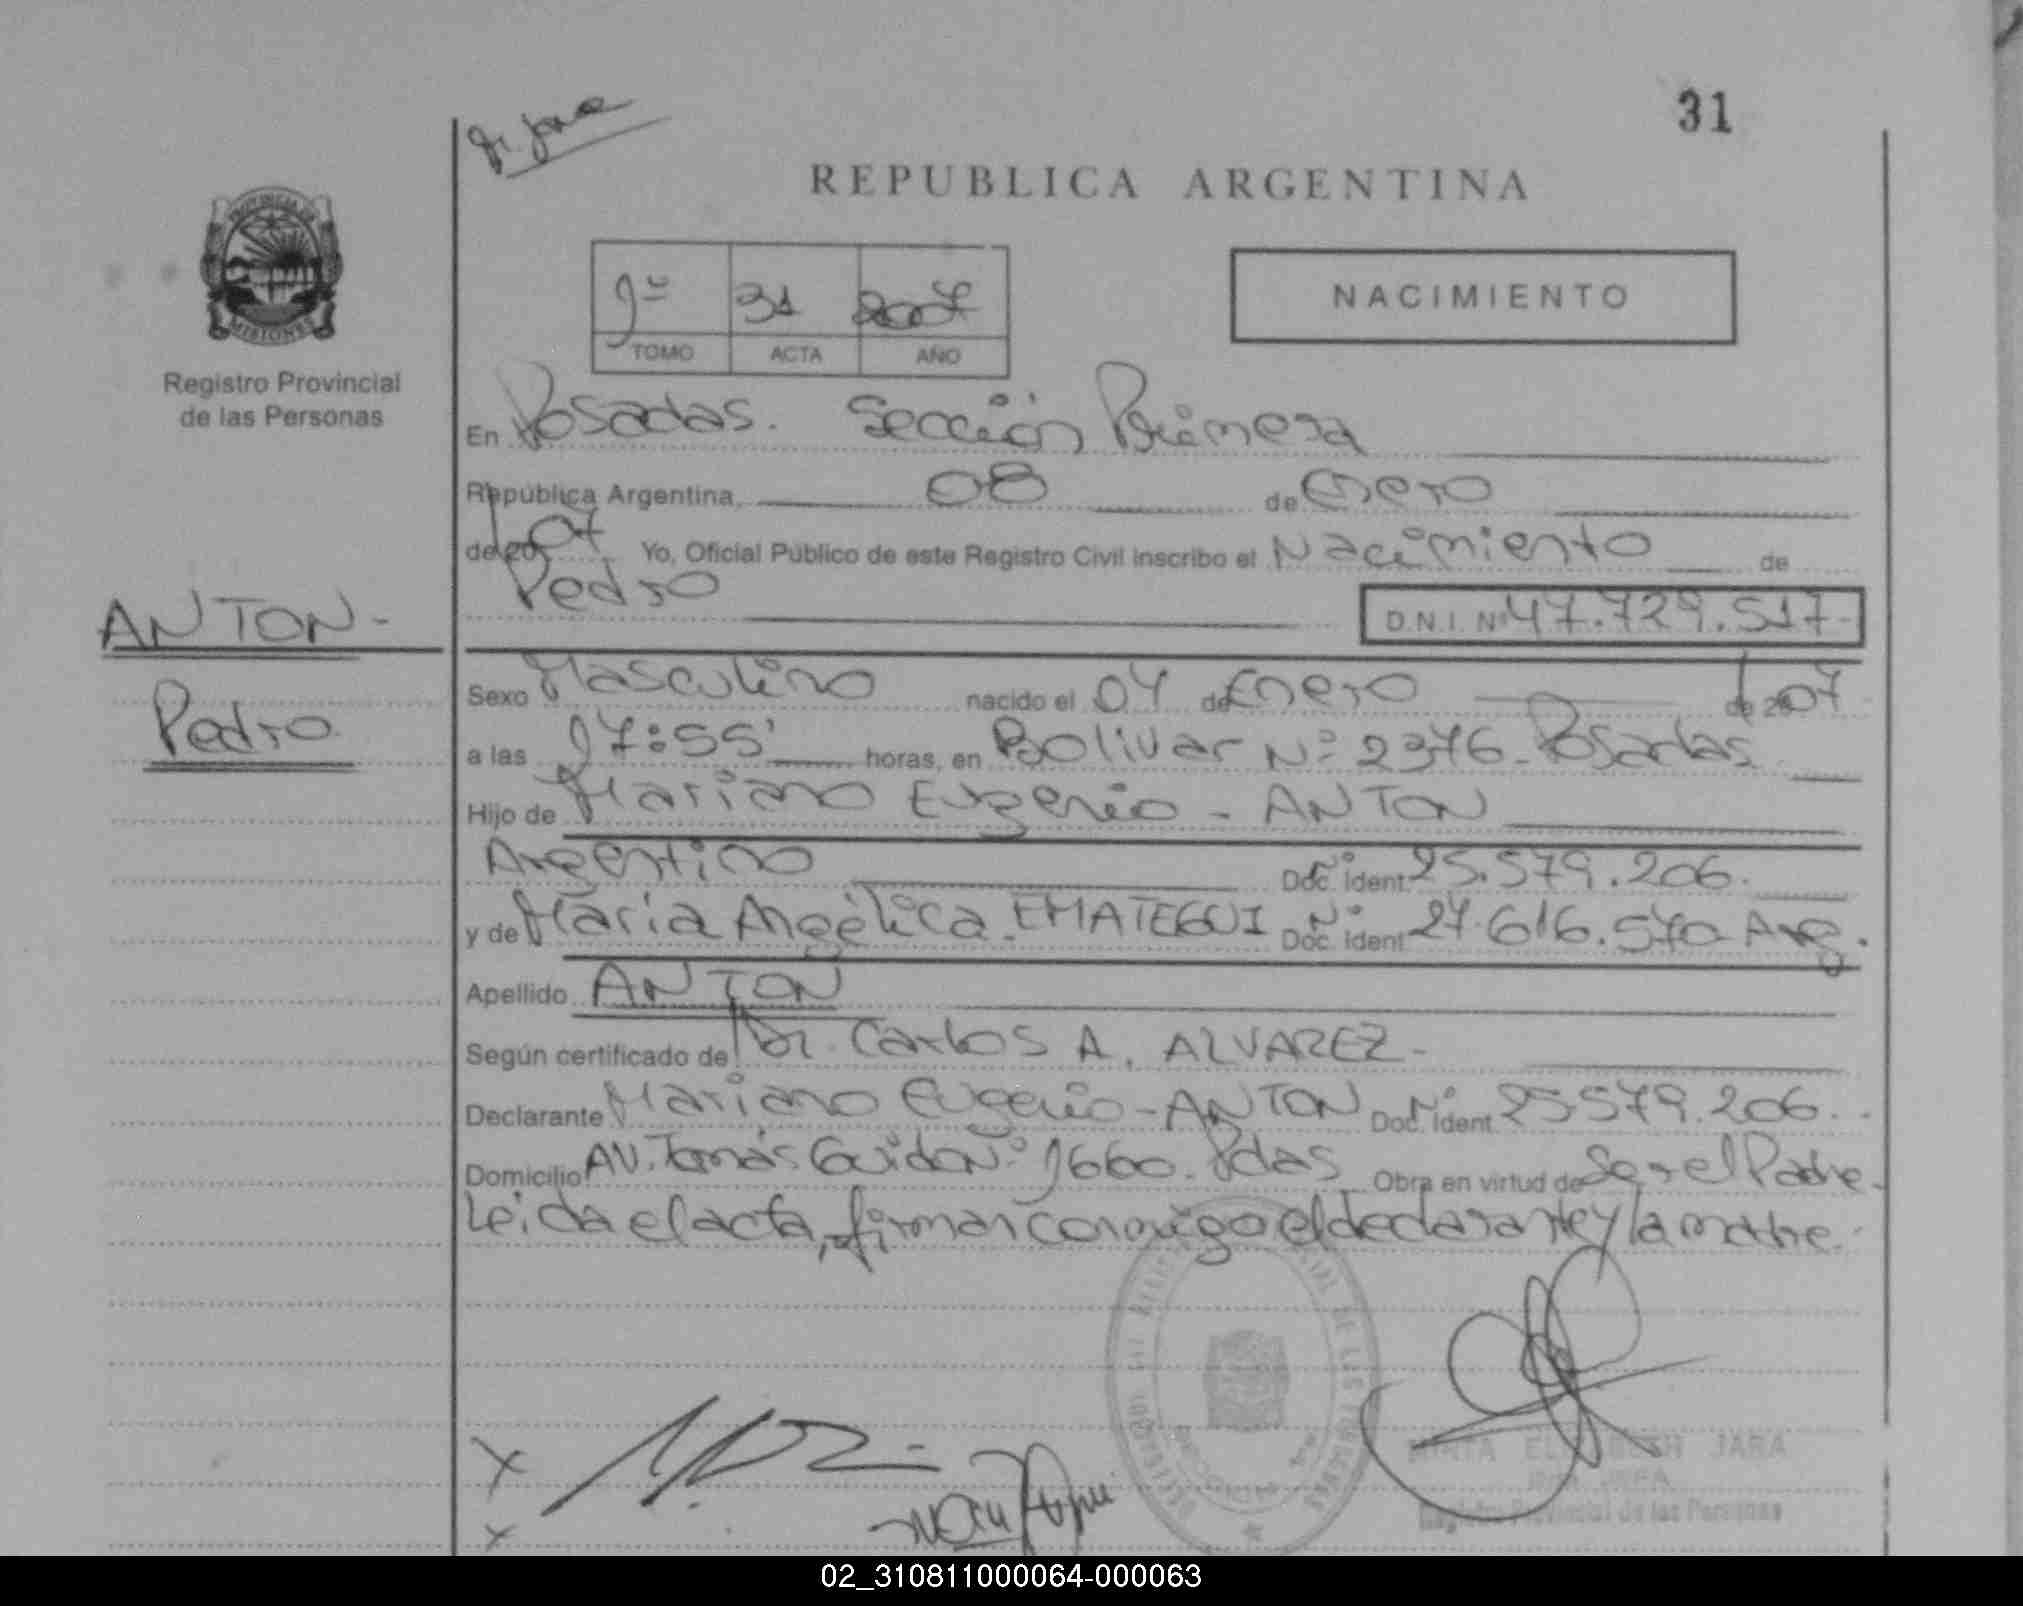 31
Dr. Jara
REPUBLICA ARGENTINA
PROVINCIA DE
MISIONES
Registro Provincial
de las Personas
1º 31 2007
TOMO ACTA AÑO
NACIMIENTO
En Posadas. Sección Primera
República Argentina, 08 de Enero
de 2007 Yo, Oficial Público de este Registro Civil inscribo el Nacimiento de
Pedro
D.N.I. Nº 47.729.517-
ANTON-
Pedro
Sexo Masculino nacido el 04 de Enero de 2007
a las 17:55' horas, en Bolivar Nº 2376- Posadas
Hijo de Mariano Eugenio - ANTON
Argentino Doc. Nº ident. 25.579.206.
y de María Angélica. EMATEGUI Doc. Nº ident. 27.616.570- Arg.
Apellido ANTON
Según certificado de Dr. Carlos A. ALVAREZ-
Declarante Mariano Eugenio - ANTON Doc. Nº ident. 25.579.206.
Domicilio AV. Tomás Guido Nº 1660. Pdas Obra en virtud de Ser el Padre-
Leida el acta, firman conmigo el declarante y la madre.
ELIZABETH JARA
Registro Provincial de las Personas
02_310811000064-000063